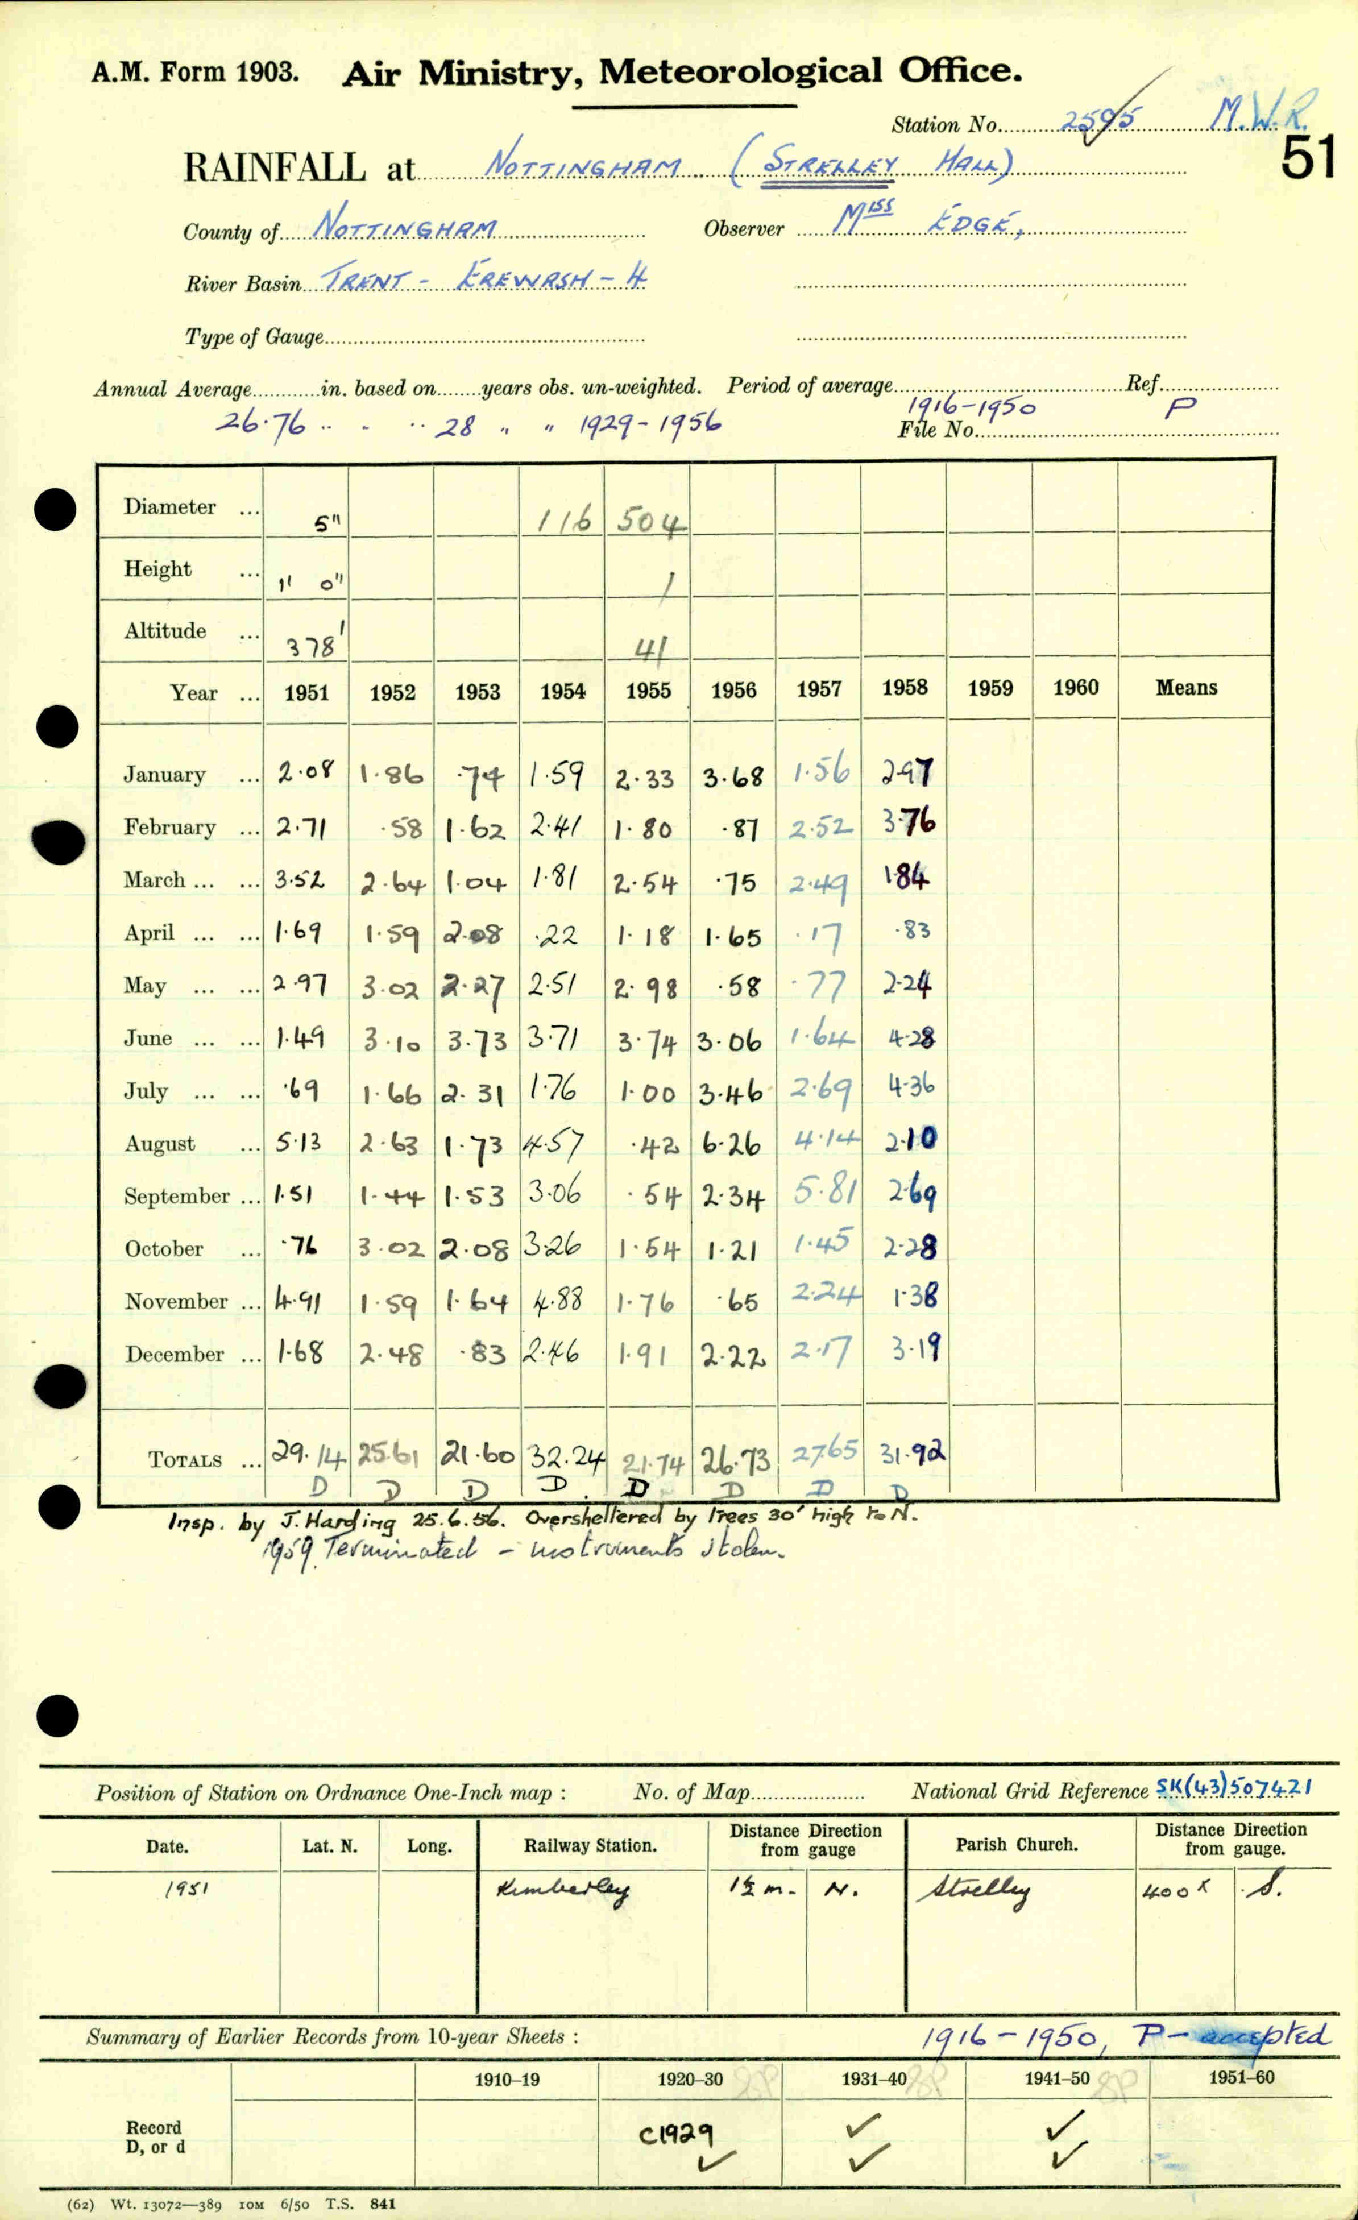 A.M. Form 1903. Air Ministry, Meteorological Office.
Station No. 2595 M.W.R.
51
RAINFALL at NOTTINGHAM (STRELLEY HALL)
County of NOTTINGHAM Observer Miss EDGE,
River Basin TRENT - EREWASH - 4
Type of Gauge
Annual Average in. based on years obs. un-weighted. Period of average Ref.
26.76 .. . .. 28 " " 1929-1956 1916-1950 P
File No.
Diameter ... 5" 116 504
Height ... 1' 0" 1
Altitude ... 378' 41
Year ... 1951 1952 1953 1954 1955 1956 1957 1958 1959 1960 Means
January ... 2.08 1.86 .74 1.59 2.33 3.68 1.56 2.97
February ... 2.71 .58 1.62 2.41 1.80 .87 2.52 3.76
March ... ... 3.52 2.64 1.04 1.81 2.54 .75 2.49 1.84
April ... ... 1.69 1.59 2.08 .22 1.18 1.65 .17 .83
May ... ... 2.97 3.02 2.27 2.51 2.98 .58 .77 2.24
June ... ... 1.49 3.10 3.73 3.71 3.74 3.06 1.64 4.28
July ... ... .69 1.66 2.31 1.76 1.00 3.46 2.69 4.36
August ... 5.13 2.63 1.73 4.57 .42 6.26 4.14 2.10
September ... 1.51 1.44 1.53 3.06 .54 2.34 5.81 2.69
October ... .76 3.02 2.08 3.26 1.54 1.21 1.45 2.28
November ... 4.91 1.59 1.64 4.88 1.76 .65 2.24 1.38
December ... 1.68 2.48 .83 2.46 1.91 2.22 2.17 3.19
TOTALS ... 29.14 25.61 21.60 32.24 21.74 26.73 27.65 31.92
D D D D D D D D
Insp. by J. Harding 25.6.56. Oversheltered by trees 30' high to N.
1959 Terminated - instruments stolen.
Position of Station on Ordnance One-Inch map : No. of Map National Grid Reference SK(43)507421
Date. Lat. N. Long. Railway Station. Distance from gauge Direction Parish Church. Distance from gauge. Direction
1951 Kimberley 1½ m. N. Strelley 400x S.
Summary of Earlier Records from 10-year Sheets : 1916-1950, P- accepted
1910–19 1920–30 1931–40 1941–50 1951–60
Record c1929 ✓ ✓
D, or d ✓ ✓ ✓
(62) Wt. 13072—389 10M 6/50 T.S. 841